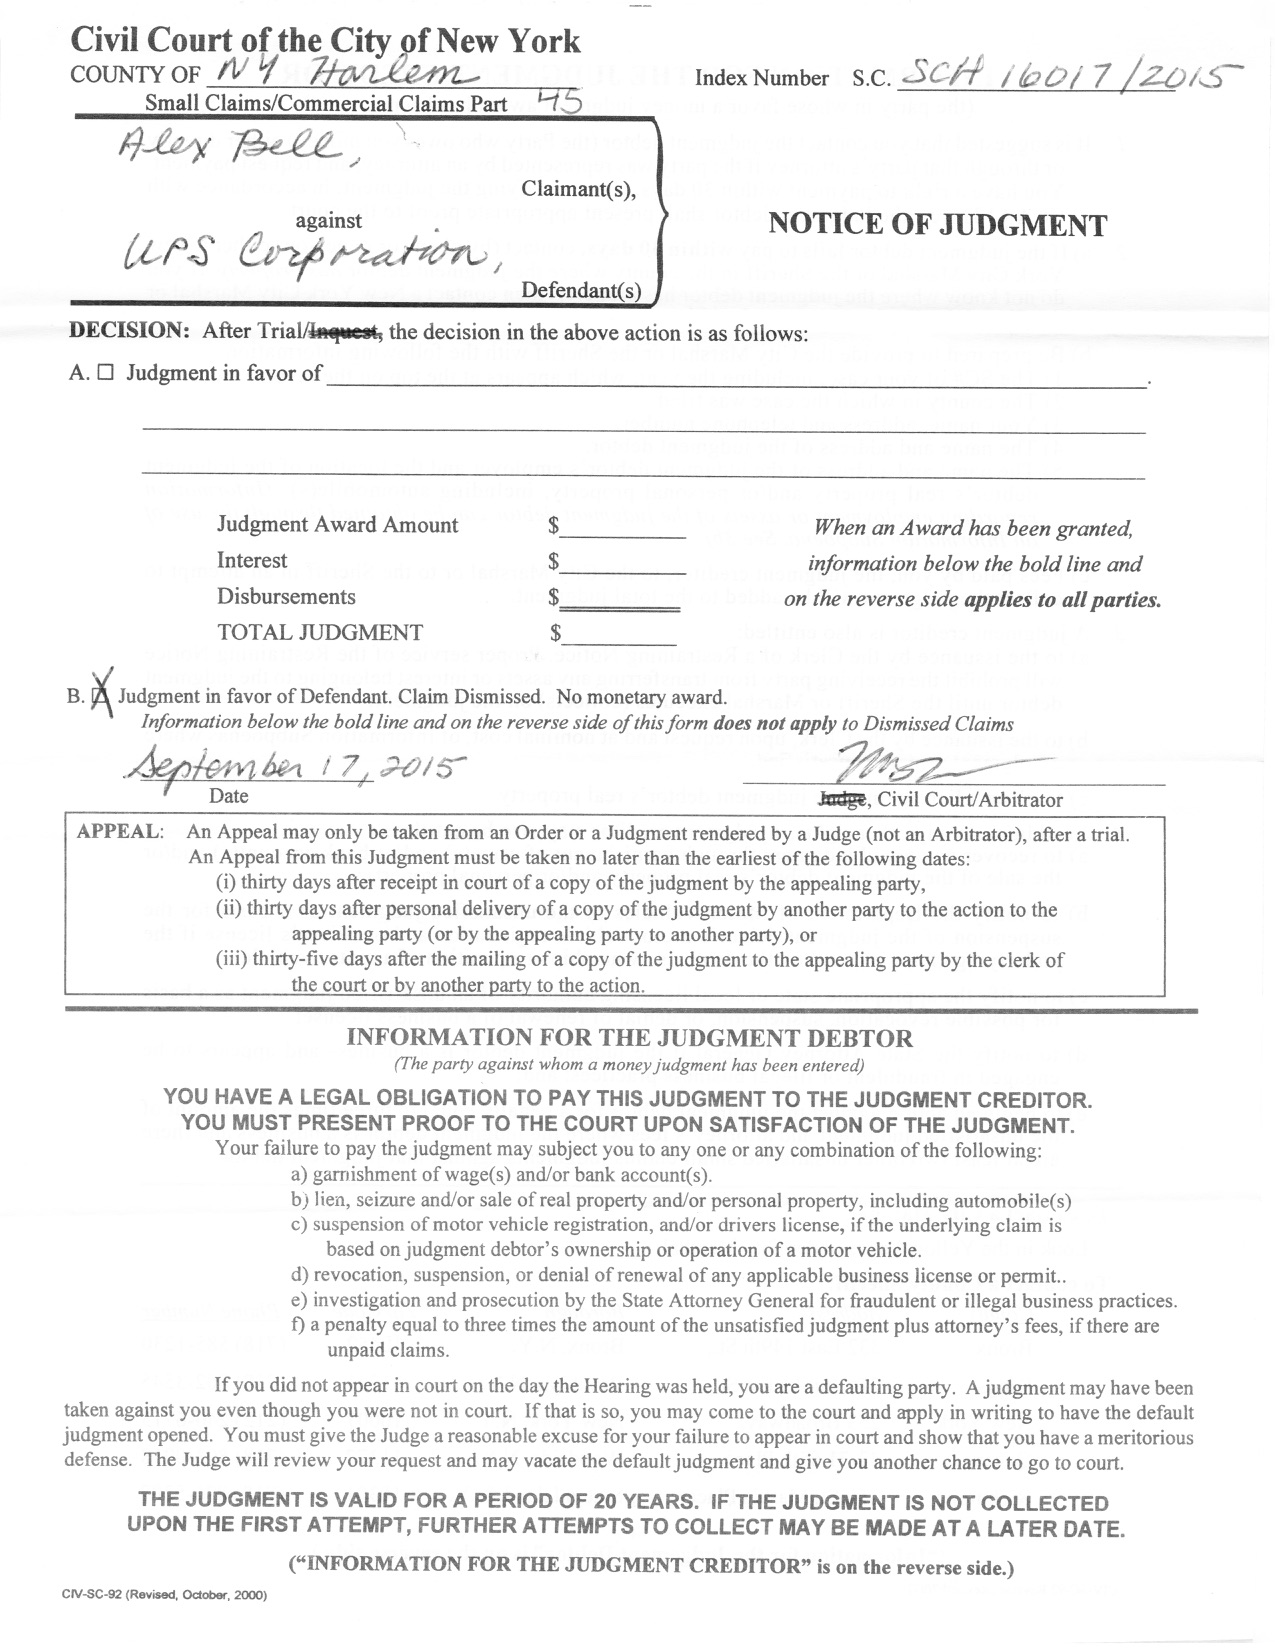 Civil Court of the City of New York
COUNTY OF NY Harlem
Index Number S.C. SCH 16017/2015
Small Claims/Commercial Claims Part 45
Alex Bell,
Claimant(s),
against
NOTICE OF JUDGMENT
UPS Corporation,
Defendant(s)
DECISION: After Trial/Inquest, the decision in the above action is as follows:
A. ☐ Judgment in favor of
Judgment Award Amount $
When an Award has been granted,
Interest $
information below the bold line and
Disbursements $
on the reverse side applies to all parties.
TOTAL JUDGMENT $
B. ☒ Judgment in favor of Defendant. Claim Dismissed. No monetary award.
Information below the bold line and on the reverse side of this form does not apply to Dismissed Claims
September 17, 2015
Date
Judge, Civil Court/Arbitrator
APPEAL: An Appeal may only be taken from an Order or a Judgment rendered by a Judge (not an Arbitrator), after a trial.
An Appeal from this Judgment must be taken no later than the earliest of the following dates:
(i) thirty days after receipt in court of a copy of the judgment by the appealing party,
(ii) thirty days after personal delivery of a copy of the judgment by another party to the action to the
appealing party (or by the appealing party to another party), or
(iii) thirty-five days after the mailing of a copy of the judgment to the appealing party by the clerk of
the court or by another party to the action.
INFORMATION FOR THE JUDGMENT DEBTOR
(The party against whom a money judgment has been entered)
YOU HAVE A LEGAL OBLIGATION TO PAY THIS JUDGMENT TO THE JUDGMENT CREDITOR.
YOU MUST PRESENT PROOF TO THE COURT UPON SATISFACTION OF THE JUDGMENT.
Your failure to pay the judgment may subject you to any one or any combination of the following:
a) garnishment of wage(s) and/or bank account(s).
b) lien, seizure and/or sale of real property and/or personal property, including automobile(s)
c) suspension of motor vehicle registration, and/or drivers license, if the underlying claim is
based on judgment debtor's ownership or operation of a motor vehicle.
d) revocation, suspension, or denial of renewal of any applicable business license or permit..
e) investigation and prosecution by the State Attorney General for fraudulent or illegal business practices.
f) a penalty equal to three times the amount of the unsatisfied judgment plus attorney's fees, if there are
unpaid claims.
If you did not appear in court on the day the Hearing was held, you are a defaulting party. A judgment may have been
taken against you even though you were not in court. If that is so, you may come to the court and apply in writing to have the default
judgment opened. You must give the Judge a reasonable excuse for your failure to appear in court and show that you have a meritorious
defense. The Judge will review your request and may vacate the default judgment and give you another chance to go to court.
THE JUDGMENT IS VALID FOR A PERIOD OF 20 YEARS. IF THE JUDGMENT IS NOT COLLECTED
UPON THE FIRST ATTEMPT, FURTHER ATTEMPTS TO COLLECT MAY BE MADE AT A LATER DATE.
("INFORMATION FOR THE JUDGMENT CREDITOR" is on the reverse side.)
CIV-SC-92 (Revised, October, 2000)